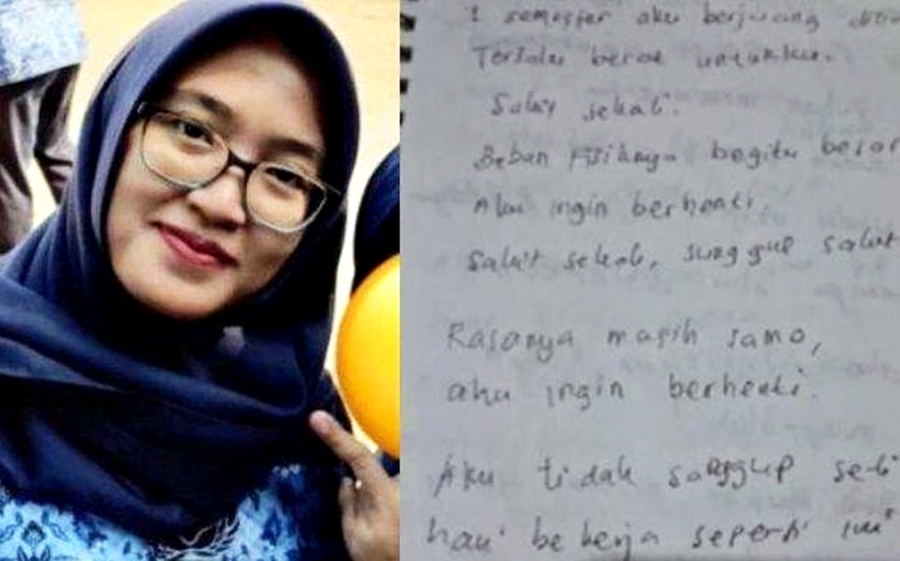 1 semester aku berjuang
Terlalu berat untukku.
Sakit sekali.
Beban fisiknya begitu besar
Aku ingin berhenti.
sakit sekali, sungguh sakit
Rasanya masih sama,
aku ingin berhenti.
Aku tidak sanggup
hari bekerja seperti ini